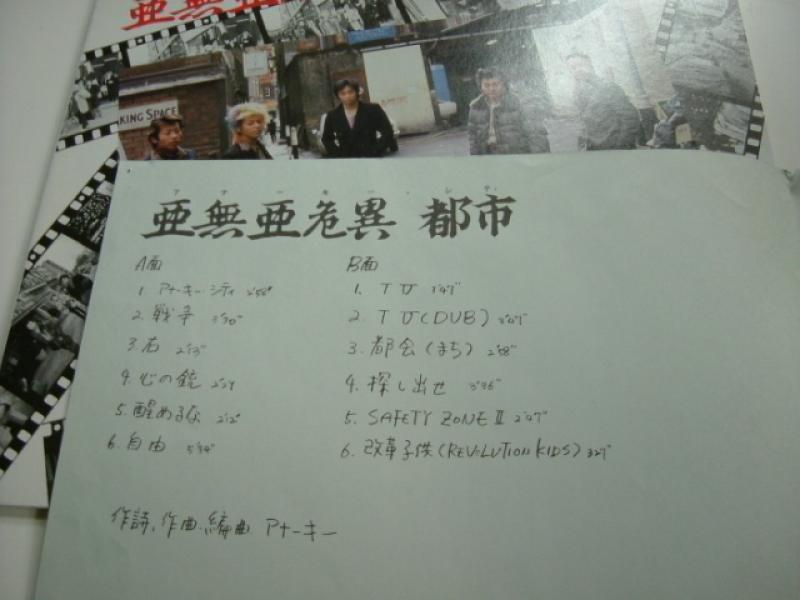 亜無亜
KING SPACE
アナーキー・シティ
亜無亜危異 都市
A面
1. アナーキー・シティ 2'58"
2. 戦争 3'30"
3. 右 2'13"
4. 心の銃 2'29
5. 醒めるな 2'12"
6. 自由
B面
1. TV 3'47"
2. TV (DUB)
3. 都会(まち) 2'58"
4. 探し出せ 3'36"
5. SAFETY ZONE II 2'47"
6. 改革子供(REVOLUTION KIDS) 3'27"
作詩、作曲、編曲 アナーキー